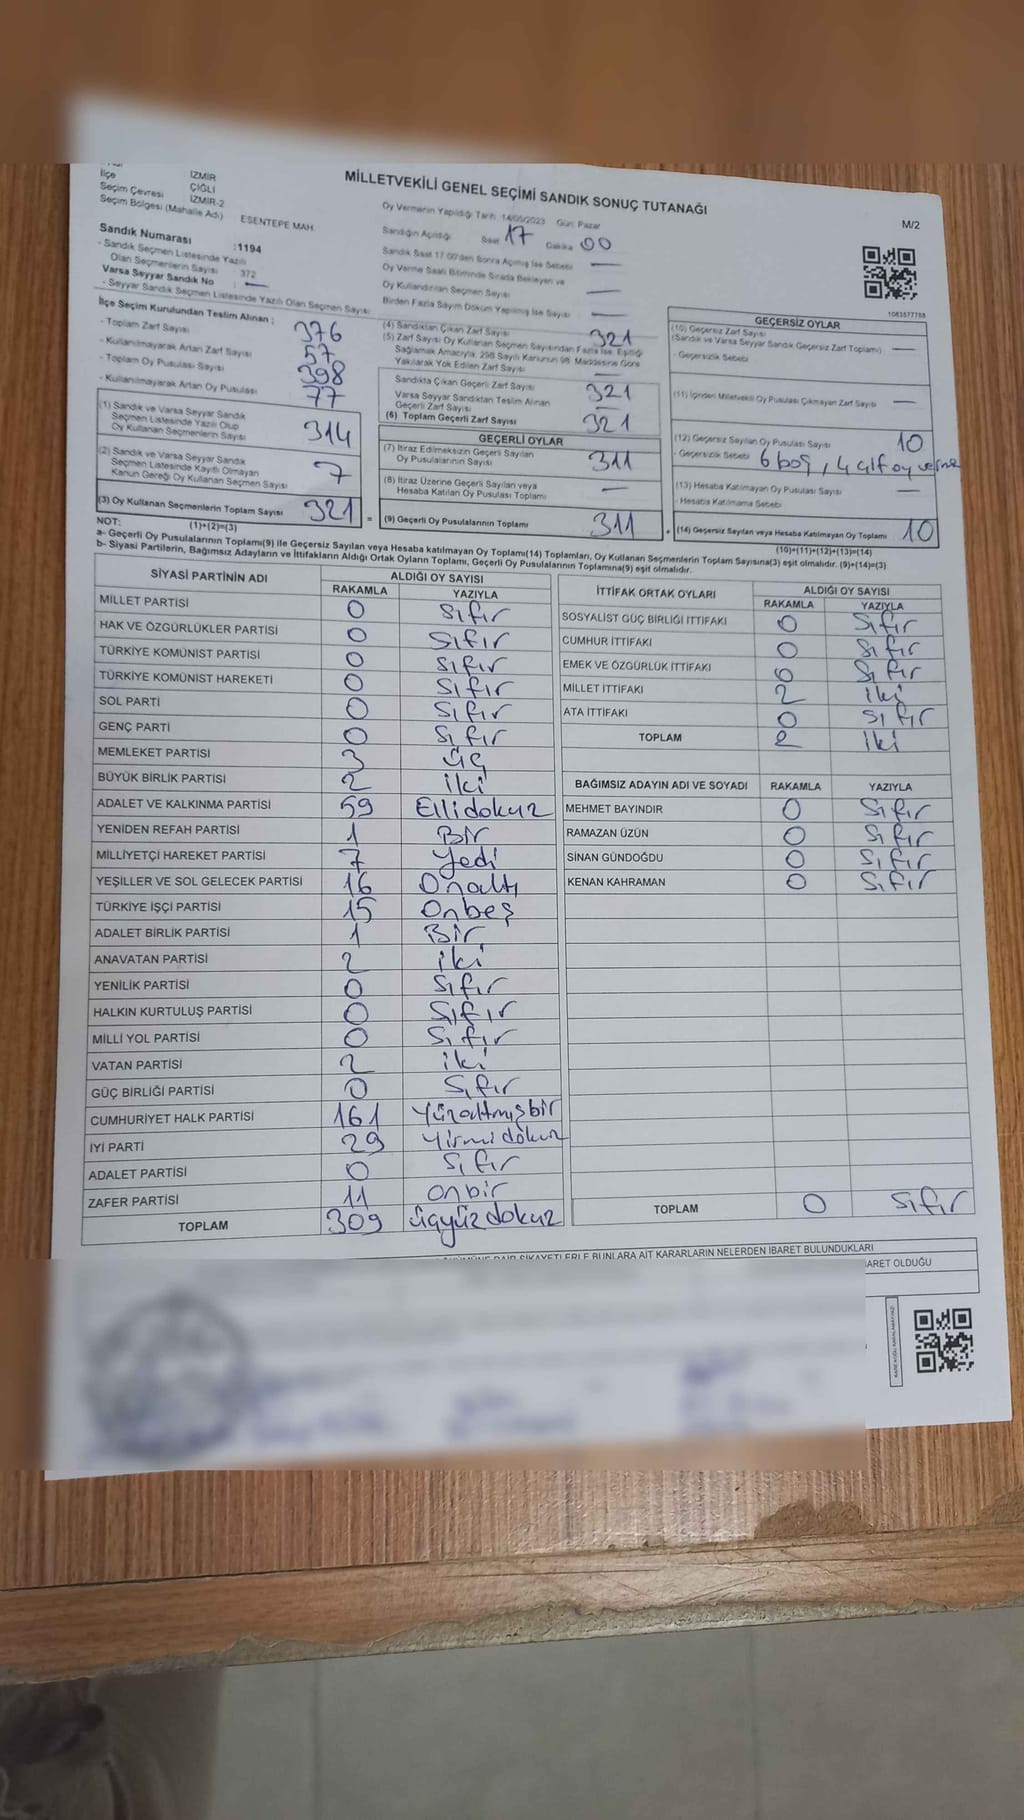 İlçe : İZMİR
Seçim Çevresi ÇİĞLİ
Seçim Bölgesi (Mahalle Adı) İZMİR-2
ESENTEPE MAH.
MİLLETVEKİLİ GENEL SEÇİMİ SANDIK SONUÇ TUTANAĞI
M/2
Oy Vermenin Yapıldığı Tarih: 14/05/2023 Gün: Pazar
Sandığın Açıldığı Saat 17 Dakika 00
Sandık Saat 17:00'den Sonra Açılmış İse Sebebi —
Oy Verme Saati Bitiminde Sırada Bekleyen ve
Oy Kullandırılan Seçmen Sayısı —
Birden Fazla Sayım Döküm Yapılmış İse Sayısı —
Sandık Numarası :1194
- Sandık Seçmen Listesinde Yazılı
Olan Seçmenlerin Sayısı : 372
Varsa Seyyar Sandık No : —
- Seyyar Sandık Seçmen Listesinde Yazılı Olan Seçmen Sayısı
1083577788
İlçe Seçim Kurulundan Teslim Alınan ;
- Toplam Zarf Sayısı 376
- Kullanılmayarak Artan Zarf Sayısı 57
- Toplam Oy Pusulası Sayısı 398
- Kullanılmayarak Artan Oy Pusulası 77
(1) Sandık ve Varsa Seyyar Sandık
Seçmen Listesinde Yazılı Olup
Oy Kullanan Seçmenlerin Sayısı 314
(2) Sandık ve Varsa Seyyar Sandık
Seçmen Listesinde Kayıtlı Olmayan
Kanun Gereği Oy Kullanan Seçmen Sayısı 7
(3) Oy Kullanan Seçmenlerin Toplam Sayısı 321 =
(1)+(2)=(3)
(4) Sandıktan Çıkan Zarf Sayısı 321
(5) Zarf Sayısı Oy Kullanan Seçmen Sayısından Fazla İse, Eşitliği
Sağlamak Amacıyla, 298 Sayılı Kanunun 98. Maddesine Göre
Yakılarak Yok Edilen Zarf Sayısı —
Sandıkta Çıkan Geçerli Zarf Sayısı 321
Varsa Seyyar Sandıktan Teslim Alınan
Geçerli Zarf Sayısı —
(6) Toplam Geçerli Zarf Sayısı 321
GEÇERLİ OYLAR
(7) İtiraz Edilmeksizin Geçerli Sayılan
Oy Pusulalarının Sayısı 311
(8) İtiraz Üzerine Geçerli Sayılan veya
Hesaba Katılan Oy Pusulası Toplamı —
(9) Geçerli Oy Pusulalarının Toplamı 311 +
GEÇERSİZ OYLAR
(10) Geçersiz Zarf Sayısı
(Sandık ve Varsa Seyyar Sandık Geçersiz Zarf Toplamı) —
- Geçersizlik Sebebi
(11) İçinden Milletvekili Oy Pusulası Çıkmayan Zarf Sayısı —
(12) Geçersiz Sayılan Oy Pusulası Sayısı 10
- Geçersizlik Sebebi 6 boş, 4 çift oy verme
(13) Hesaba Katılmayan Oy Pusulası Sayısı —
- Hesaba Katılmama Sebebi
(14) Geçersiz Sayılan veya Hesaba Katılmayan Oy Toplamı 10
(10)+(11)+(12)+(13)=(14)
NOT:
a- Geçerli Oy Pusulalarının Toplamı(9) ile Geçersiz Sayılan veya Hesaba katılmayan Oy Toplamı(14) Toplamları, Oy Kullanan Seçmenlerin Toplam Sayısına(3) eşit olmalıdır. (9)+(14)=(3)
b- Siyasi Partilerin, Bağımsız Adayların ve İttifakların Aldığı Ortak Oyların Toplamı, Geçerli Oy Pusulalarının Toplamına(9) eşit olmalıdır.
SİYASİ PARTİNİN ADI ALDIĞI OY SAYISI
RAKAMLA YAZIYLA
MİLLET PARTİSİ 0 Sıfır
HAK VE ÖZGÜRLÜKLER PARTİSİ 0 Sıfır
TÜRKİYE KOMÜNİST PARTİSİ 0 Sıfır
TÜRKİYE KOMÜNİST HAREKETİ 0 Sıfır
SOL PARTİ 0 Sıfır
GENÇ PARTİ 0 Sıfır
MEMLEKET PARTİSİ 3 üç
BÜYÜK BİRLİK PARTİSİ 2 iki
ADALET VE KALKINMA PARTİSİ 59 Ellidokuz
YENİDEN REFAH PARTİSİ 1 Bir
MİLLİYETÇİ HAREKET PARTİSİ 7 Yedi
YEŞİLLER VE SOL GELECEK PARTİSİ 16 Onaltı
TÜRKİYE İŞÇİ PARTİSİ 15 Onbeş
ADALET BİRLİK PARTİSİ 1 Bir
ANAVATAN PARTİSİ 2 iki
YENİLİK PARTİSİ 0 Sıfır
HALKIN KURTULUŞ PARTİSİ 0 Sıfır
MİLLİ YOL PARTİSİ 0 Sıfır
VATAN PARTİSİ 2 iki
GÜÇ BİRLİĞİ PARTİSİ 0 Sıfır
CUMHURİYET HALK PARTİSİ 161 Yüzaltmışbir
İYİ PARTİ 29 Yirmidokuz
ADALET PARTİSİ 0 Sıfır
ZAFER PARTİSİ 11 onbir
TOPLAM 309 üçyüzdokuz
İTTİFAK ORTAK OYLARI ALDIĞI OY SAYISI
RAKAMLA YAZIYLA
SOSYALİST GÜÇ BİRLİĞİ İTTİFAKI 0 Sıfır
CUMHUR İTTİFAKI 0 Sıfır
EMEK VE ÖZGÜRLÜK İTTİFAKI 0 Sıfır
MİLLET İTTİFAKI 2 iki
ATA İTTİFAKI 0 Sıfır
TOPLAM 2 iki
BAĞIMSIZ ADAYIN ADI VE SOYADI RAKAMLA YAZIYLA
MEHMET BAYINDIR 0 Sıfır
RAMAZAN ÜZÜN 0 Sıfır
SİNAN GÜNDOĞDU 0 Sıfır
KENAN KAHRAMAN 0 Sıfır
TOPLAM 0 Sıfır
ŞİKAYETLERLE BUNLARA AİT KARARLARIN NELERDEN İBARET BULUNDUKLARI
OLDUĞU